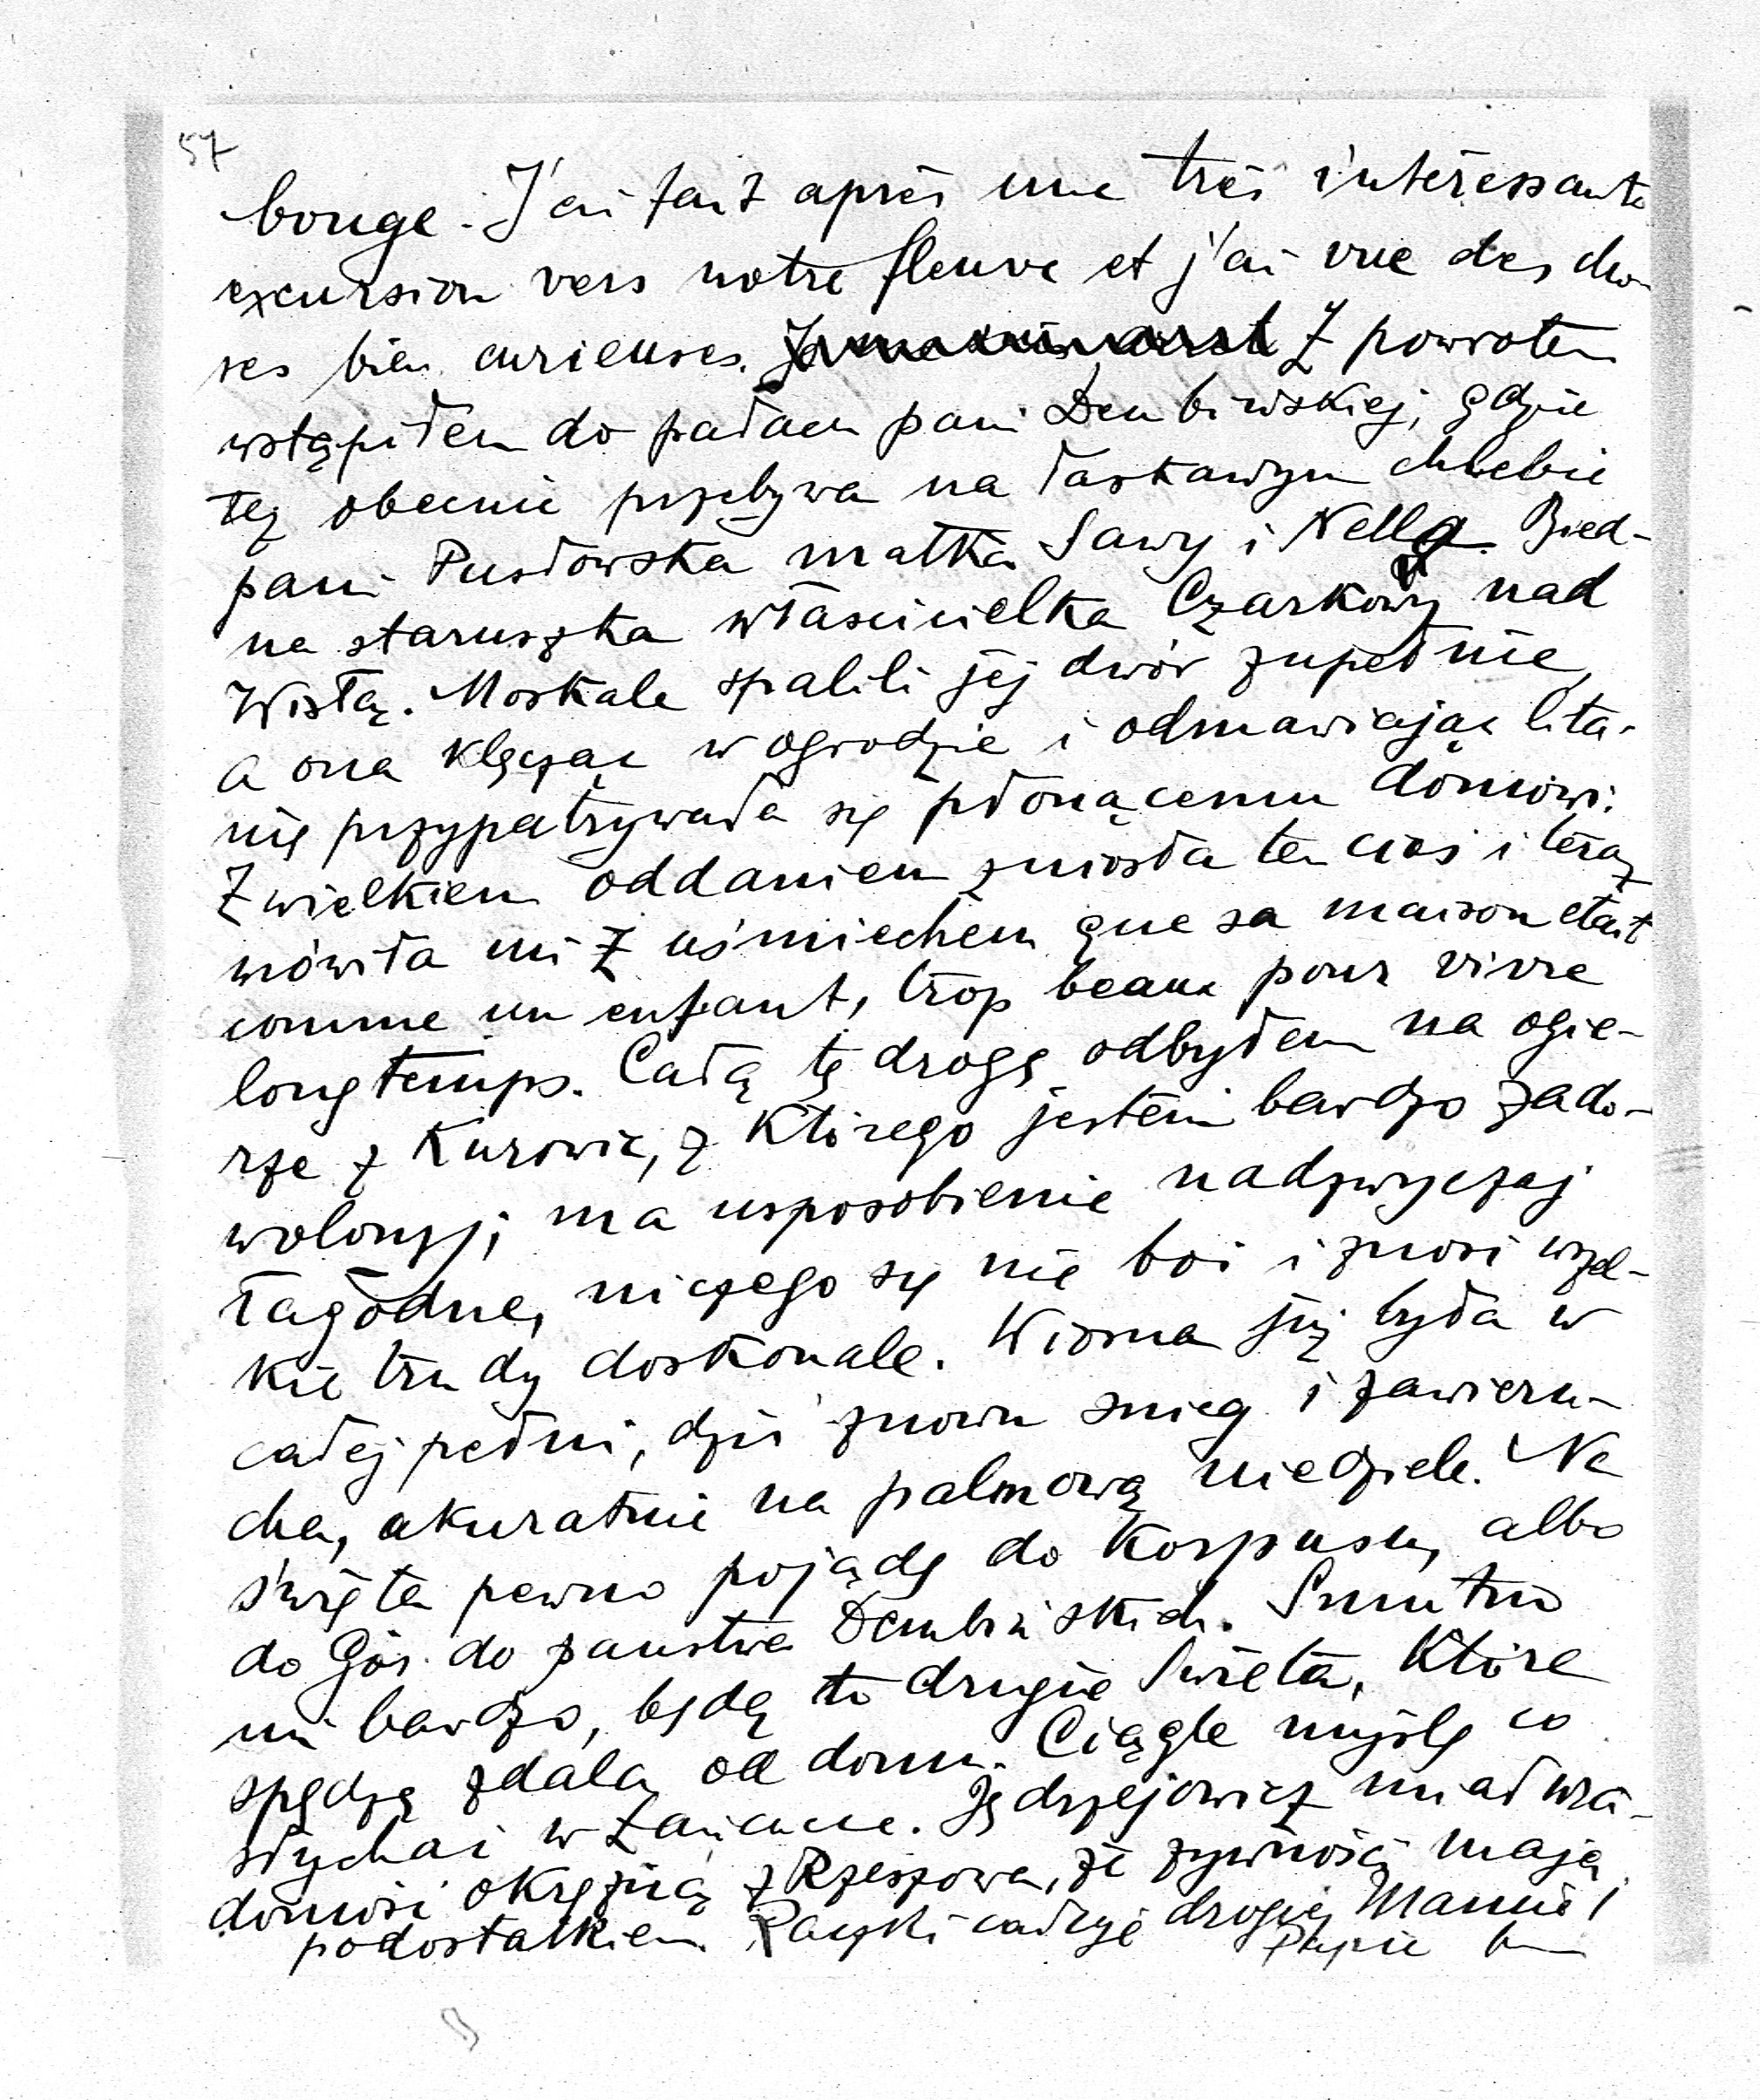 57
bouge. J'ai fait après une très intéressante
excursion vers notre fleuve et j'ai vue des cho-
ses bien curieuses. Z powrotem
wstąpiłem do pałacu pani Dembińskiej, gdzie
też obecnie przebywa na łaskawym chlebie
pani Pusłowska matka Sawy i Nelly. Bied-
na staruszka właścicielka Czarkowy nad
Wisłą. Moskale spalili jej dwór zupełnie,
a ona klęcząc w ogrodzie i odmawiając lita-
nię przypatrywała się płonącemu domowi.
Z wielkiem oddaniem zniosła ten cios i teraz
mówiła mi z uśmiechem que sa maison était
comme un enfant, trop beau pour vivre
longtemps. Całą tę drogę odbyłem na ogie-
rze z Kurowic, z którego jestem bardzo zado-
wolony; ma usposobienie nadzwyczaj
łagodne, niczego się nie boi i znosi wszel-
kie trudy doskonale. Wiosna już była w
całej pełni, dziś znowu śnieg i zawieru-
cha, akuratnie na palmową niedziele. Na
święta pewno pojadę do Korpusu, albo
do Gór do państwa Dembińskich. Smutno
mi bardzo, będą to drugie święta, które
spędzę zdala od domu. Ciągle myślę co
słychać w Łańcucie. Jędrzejowicz miał wia-
domość okrężną z Rzeszowa, że żywność mają
podostatkiem. Rączki całuję drogiej Mamie i